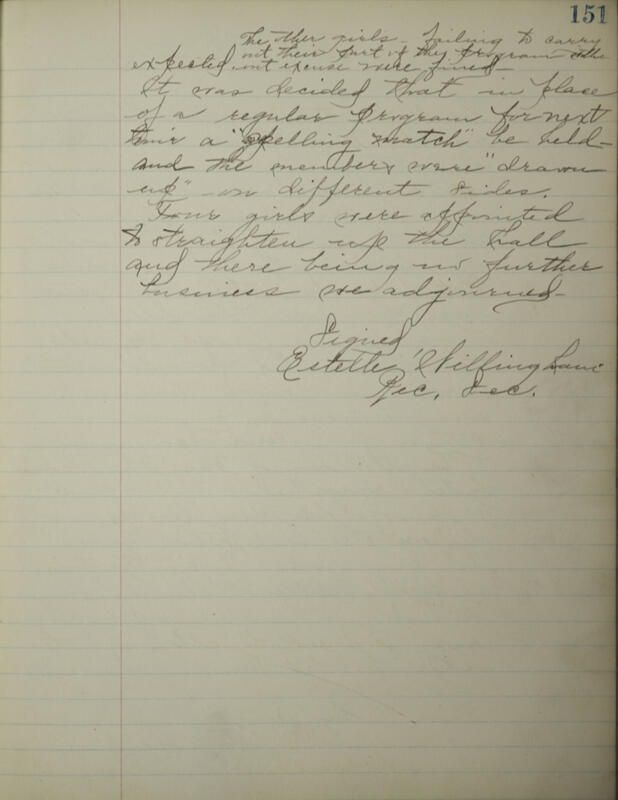 151
The other girls - failing to carry
out their part of the program with-
expected. out excuse were fined -
It was decided that in place
of a regular program for next
time a "spelling match" be held -
and the members were "drawn
up" - on different sides.
Four girls were appointed
to straighten up the hall
and there being no further
business we adjourned -
Signed
Estelle Willingham
Rec. Sec.